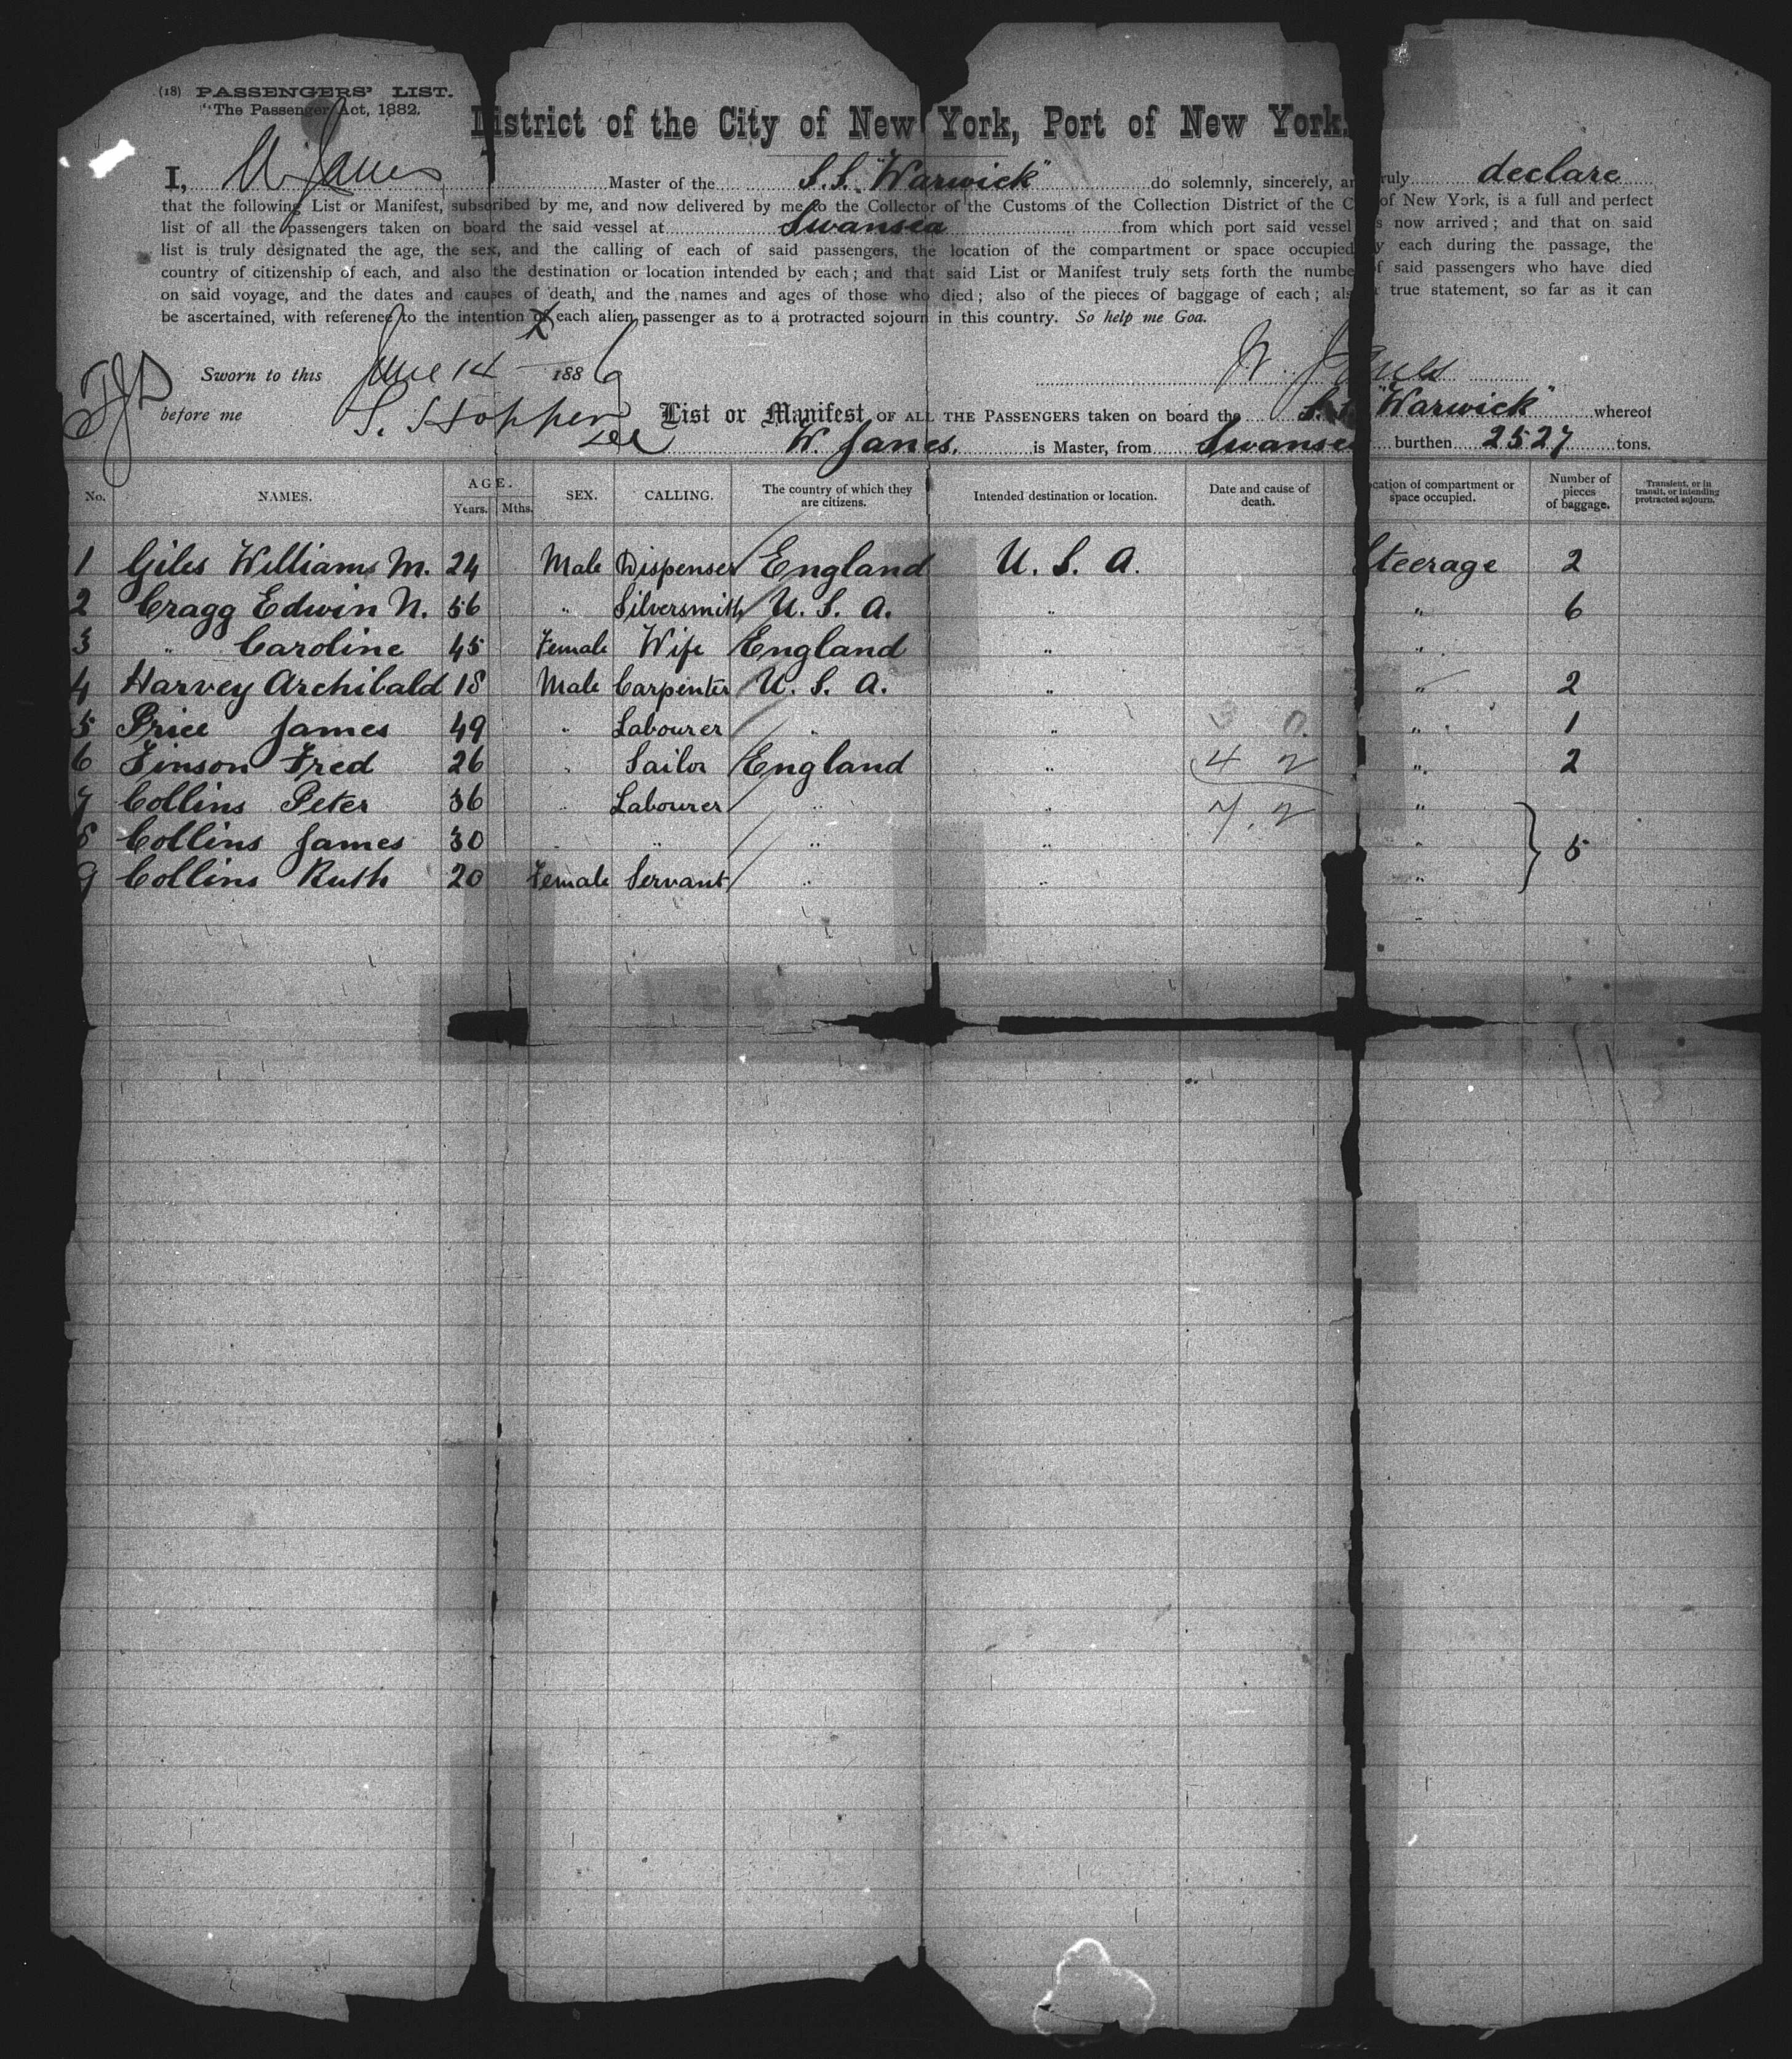 (18) PASSENGERS' LIST.
"The Passenger Act, 1882.
District of the City of New York, Port of New York.
I, W. Janes Master of the S.S. "Warwick" do solemnly, sincerely, an ruly declare
that the following List or Manifest, subscribed by me, and now delivered by me to the Collector of the Customs of the Collection District of the C of New York, is a full and perfect
list of all the passengers taken on board the said vessel at Swansea from which port said vessel s now arrived; and that on said
list is truly designated the age, the sex, and the calling of each of said passengers, the location of the compartment or space occupied y each during the passage, the
country of citizenship of each, and also the destination or location intended by each; and that said List or Manifest truly sets forth the numbe f said passengers who have died
on said voyage, and the dates and causes of death, and the names and ages of those who died; also of the pieces of baggage of each; als true statement, so far as it can
be ascertained, with reference to the intention of each alien passenger as to a protracted sojourn in this country. So help me God.
Sworn to this June 14 1886 W. Janes
before me S. Hopper List or Manifest OF ALL THE PASSENGERS taken on board the S.S. "Warwick" whereof
W. Janes. is Master, from Swansea burthen 2527 tons.
No. NAMES. AGE. Years. Mths. SEX. CALLING. The country of which they are citizens. Intended destination or location. Date and cause of death. ocation of compartment or space occupied. Number of pieces of baggage. Transient, or in transit, or intending protracted sojourn.
1 Giles Williams M. 24 Male Dispenser England U. S. A. Steerage 2
2 Cragg Edwin N. 56 " Silversmith U. S. A. " " 6
3 " Caroline 45 Female Wife England " "
4 Harvey Archibald 18 Male Carpenter U. S. A. " " 2
5 Price James 49 " Labourer " " " 1
6 Finson Fred 26 " Sailor England " 4 2 " 2
7 Collins Peter 36 " Labourer " " 7. 2 "
8 Collins James 30 " " " " " 5
9 Collins Ruth 20 Female Servant " " "